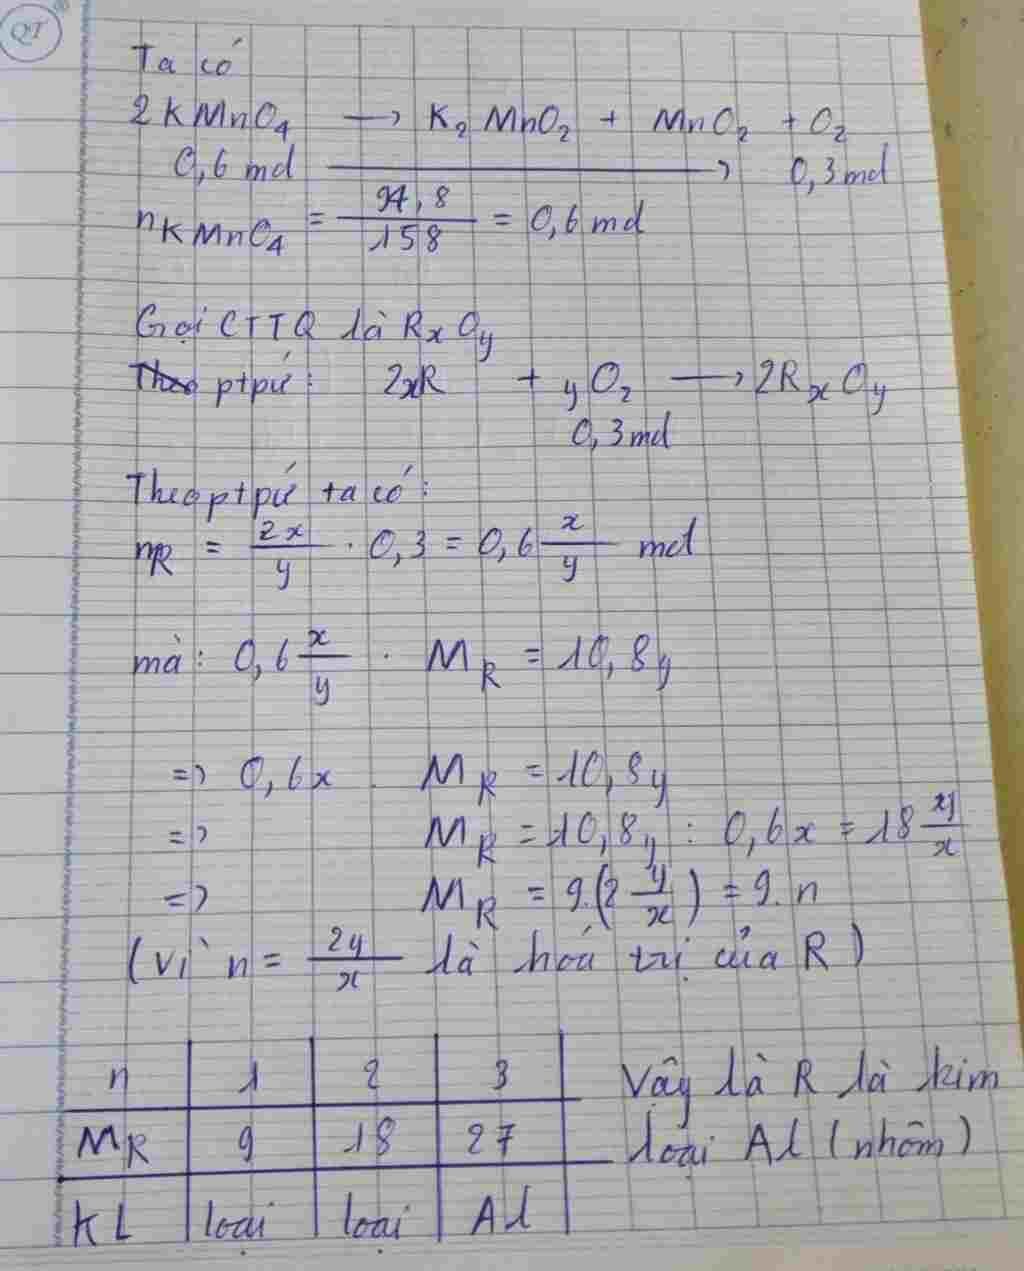 QT
Ta có
2KMnO4 → K2MnO2 + MnO2 + O2
0,6 md → 0,3md
nKMnO4 = 94,8/158 = 0,6 md
Gọi CTTQ là RxOy
ptpứ: 2xR + yO2 → 2RxOy
0,3md
Theo ptpứ ta có:
nR = 2x/y . 0,3 = 0,6 x/y md
mà: 0,6 x/y . MR = 10,8y
=> 0,6x . MR = 10,8y
=> MR = 10,8y : 0,6x = 18 y/x
=> MR = 9.(2 y/x) = 9.n
(vì n = 2y/x là hoá trị của R)
n 1 2 3
MR 9 18 27
KL loại loại Al
Vậy là R là kim
loại Al (nhôm)